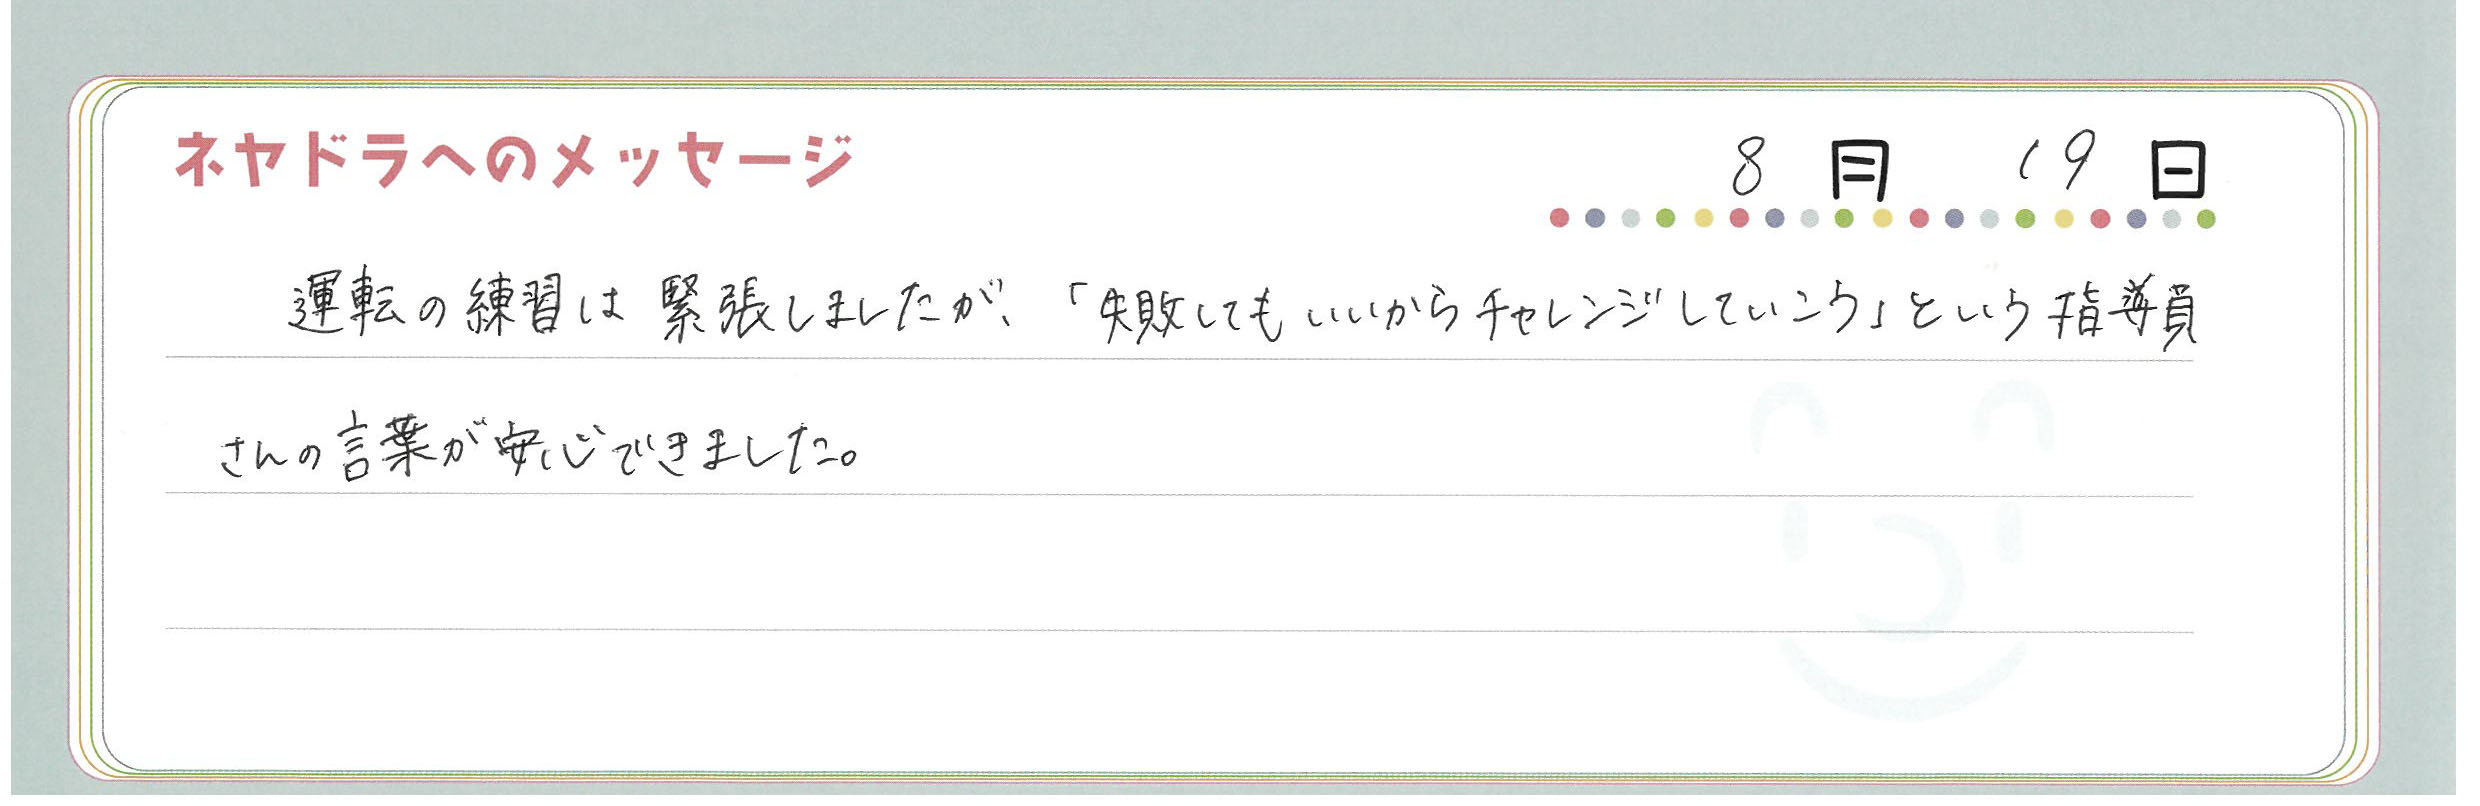 ネヤドラへのメッセージ
8月 19日
運転の練習は緊張しましたが、「失敗してもいいからチャレンジしていこう」という指導員
さんの言葉が安心できました。